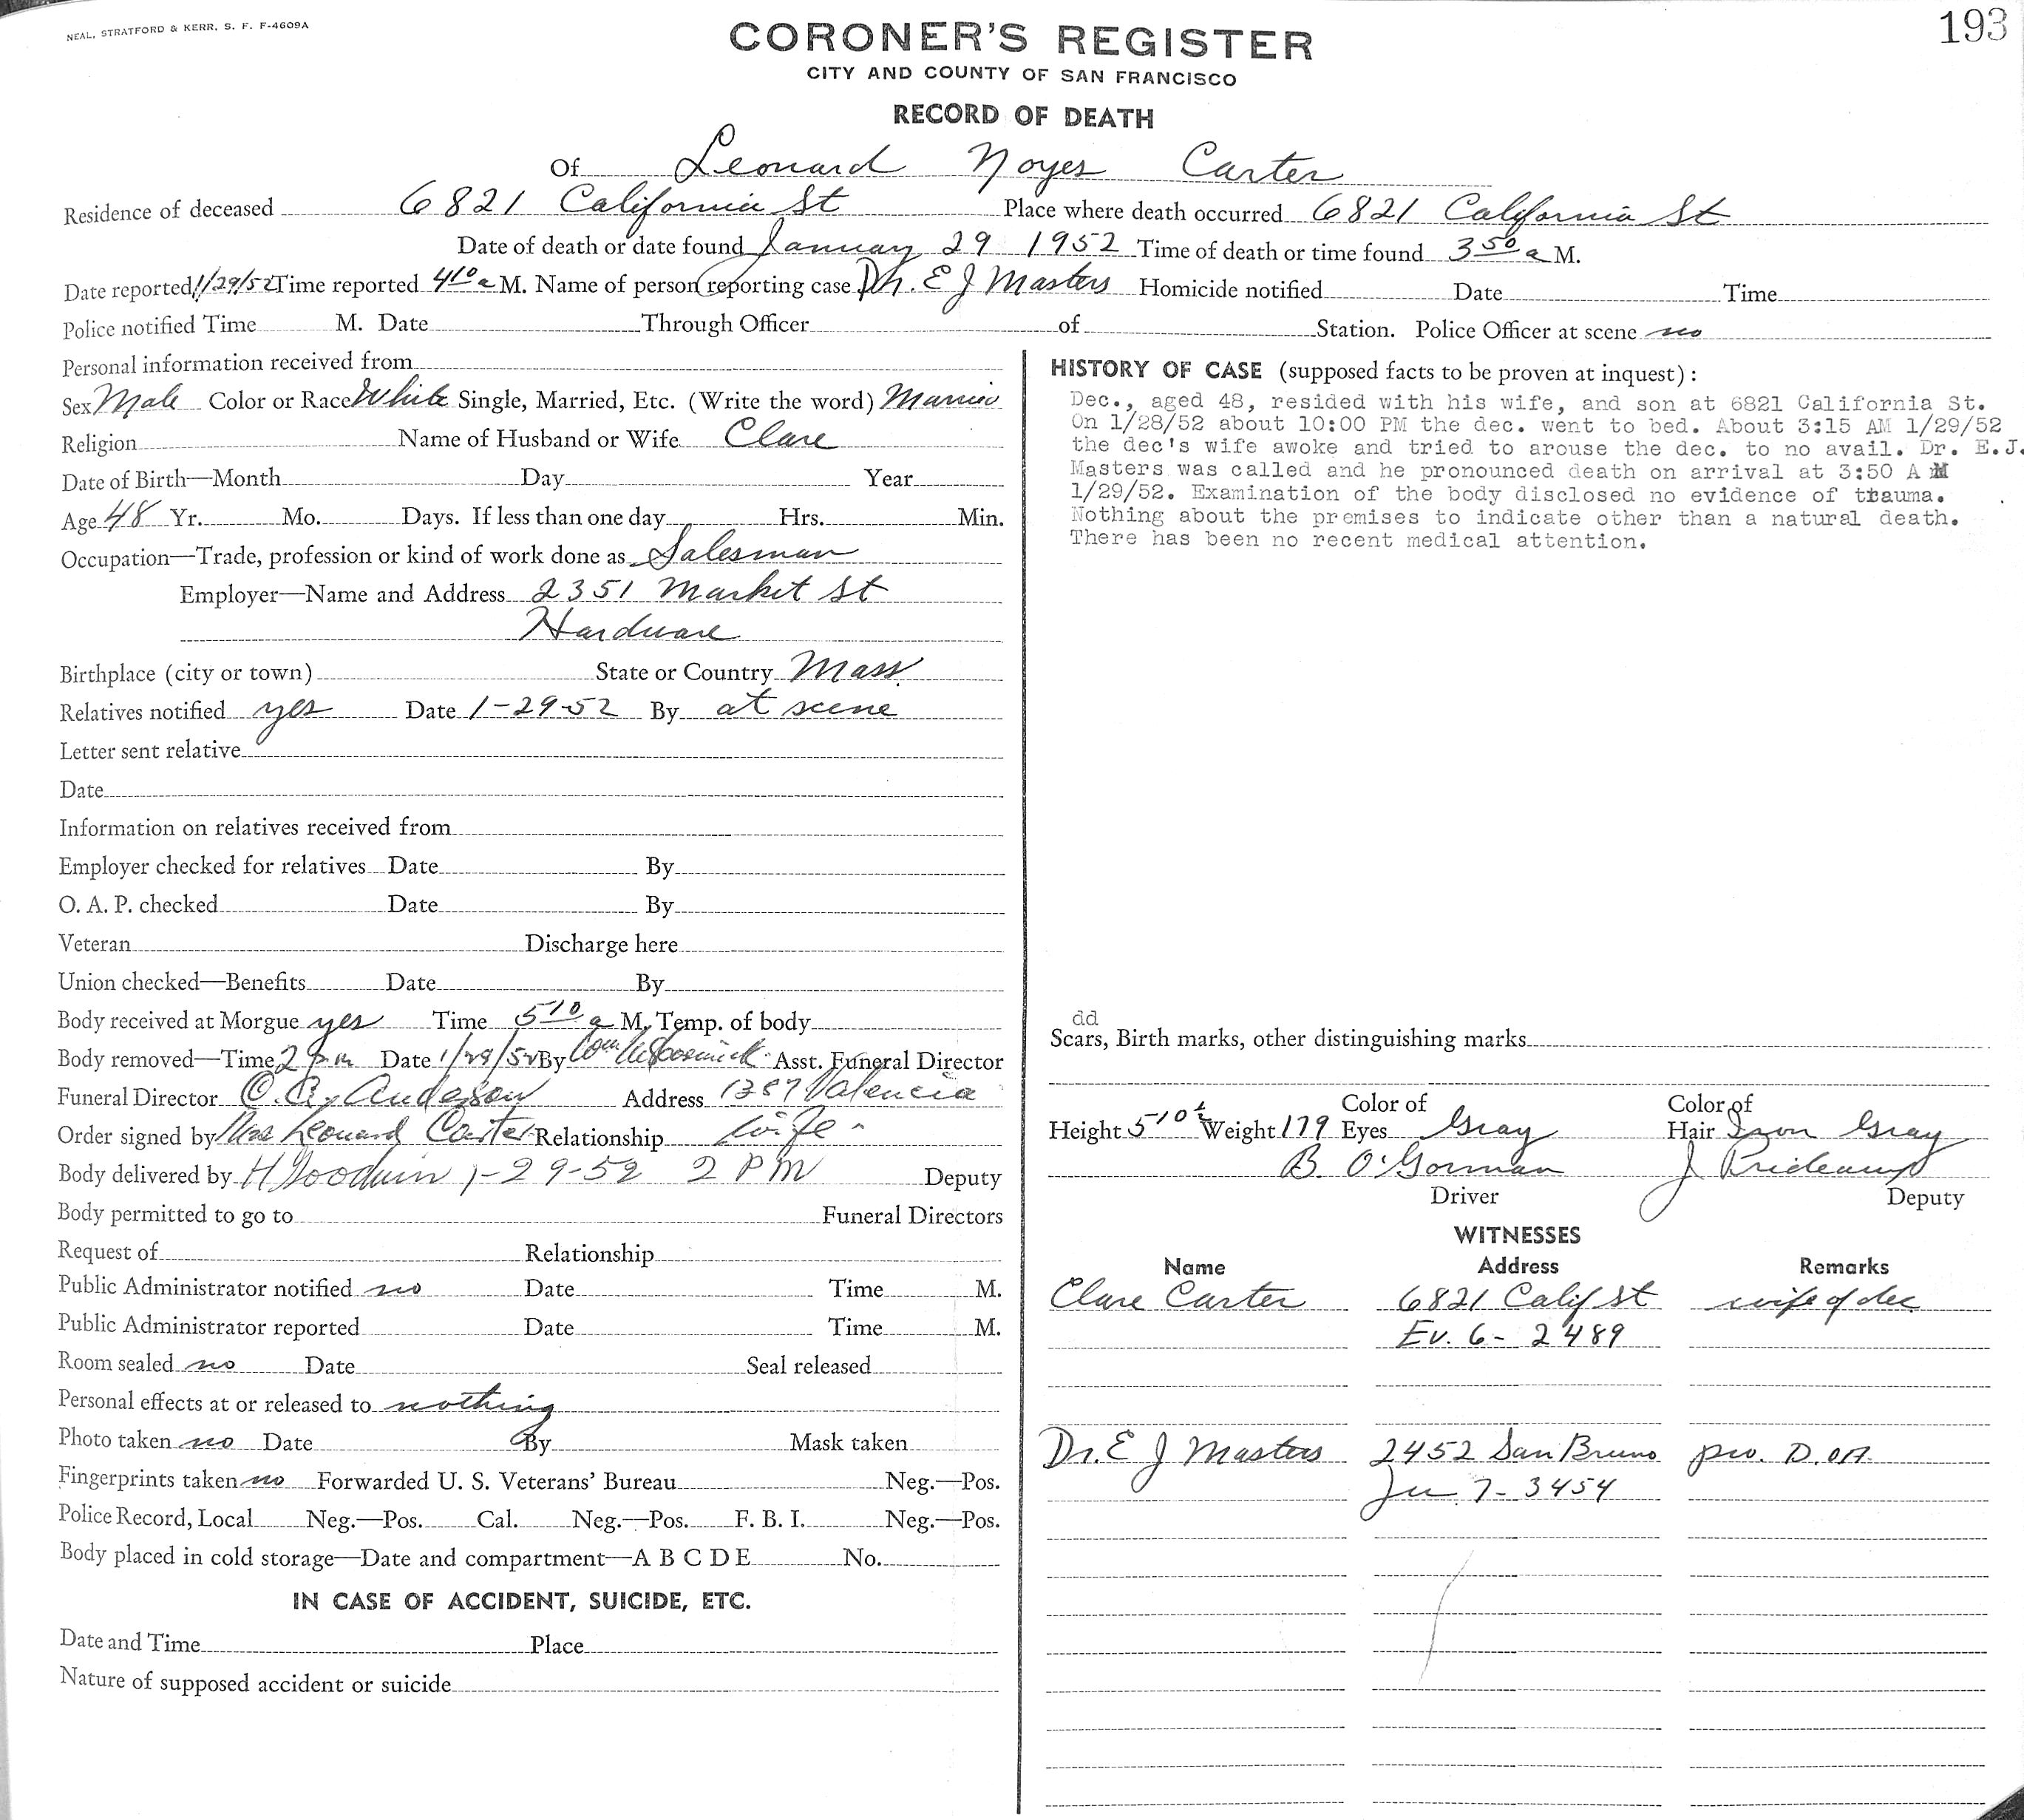 NEAL, STRATFORD & KERR, S. F. F-4609A
193
CORONER'S REGISTER
CITY AND COUNTY OF SAN FRANCISCO
RECORD OF DEATH
Of Leonard Noyes Carter
Residence of deceased 6821 California St Place where death occurred 6821 California St
Date of death or date found January 29 1952 Time of death or time found 3 50 a M.
Date reported 1/29/52 Time reported 4 10 a M. Name of person reporting case Dr. E J Masters Homicide notified Date Time
Police notified Time M. Date Through Officer of Station. Police Officer at scene no
Personal information received from
Sex Male Color or Race White Single, Married, Etc. (Write the word) Married
Religion Name of Husband or Wife Clare
Date of Birth—Month Day Year
Age 48 Yr. Mo. Days. If less than one day Hrs. Min.
Occupation—Trade, profession or kind of work done as Salesman
Employer—Name and Address 2351 Market St
Hardware
Birthplace (city or town) State or Country Mass.
Relatives notified yes Date 1-29-52 By at scene
Letter sent relative
Date
Information on relatives received from
Employer checked for relatives Date By
O. A. P. checked Date By
Veteran Discharge here
Union checked—Benefits Date By
Body received at Morgue yes Time 5 10 a M. Temp. of body
Body removed—Time 2 pm Date 1/29/52 By Wm Asst. Funeral Director
Funeral Director Anderson Address Valencia
Order signed by Mrs Leonard Carter Relationship wife
Body delivered by H Goodwin 1-29-52 2 PM Deputy
Body permitted to go to Funeral Directors
Request of Relationship
Public Administrator notified no Date Time M.
Public Administrator reported Date Time M.
Room sealed no Date Seal released
Personal effects at or released to nothing
Photo taken no Date By Mask taken
Fingerprints taken no Forwarded U. S. Veterans' Bureau Neg.—Pos.
Police Record, Local Neg.—Pos. Cal. Neg.—Pos. F. B. I. Neg.—Pos.
Body placed in cold storage—Date and compartment—A B C D E No.
IN CASE OF ACCIDENT, SUICIDE, ETC.
Date and Time Place
Nature of supposed accident or suicide
HISTORY OF CASE (supposed facts to be proven at inquest):
Dec., aged 48, resided with his wife, and son at 6821 California St.
On 1/28/52 about 10:00 PM the dec. went to bed. About 3:15 AM 1/29/52
the dec's wife awoke and tried to arouse the dec. to no avail. Dr. E.J.
Masters was called and he pronounced death on arrival at 3:50 A M
1/29/52. Examination of the body disclosed no evidence of trauma.
Nothing about the premises to indicate other than a natural death.
There has been no recent medical attention.
dd
Scars, Birth marks, other distinguishing marks
Height 5-10½ Weight 179 Color of Eyes Gray Color of Hair Iron Gray
B. O'Gorman J Prideaux
Driver Deputy
WITNESSES
Name Address Remarks
Clare Carter 6821 Calif St wife of dec
Ev. 6- 2489
Dr. E J Masters 2452 San Bruno pro. D.OA.
Ju 7- 3454